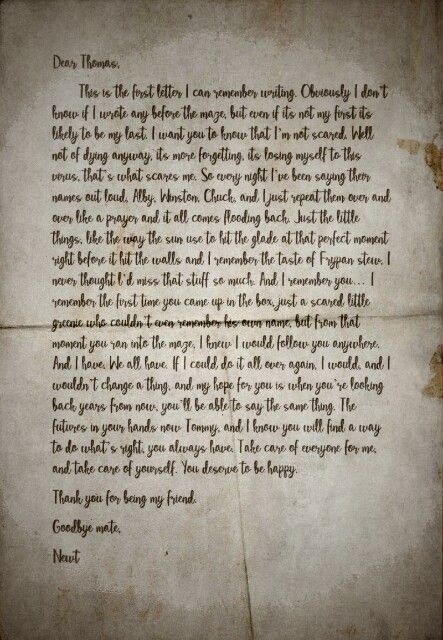 Dear Thomas,
This is the first letter I can remember writing. Obviously I don't
know if I wrote any before the maze, but even if its not my first its
likely to be my last. I want you to know that I'm not scared. Well
not of dying anyway, its more forgetting, its losing myself to this
virus, that's what scares me. So every night I've been saying their
names out loud, Alby, Winston, Chuck, and I just repeat them over and
over like a prayer and it all comes flooding back. Just the little
things, like the way the sun use to hit the glade at that perfect moment
right before it hit the walls and I remember the taste of Frypan stew, I
never thought I'd miss that stuff so much. And I remember you... I
remember the first time you came up in the box, just a scared little
greenie who couldn't even remember his own name, but from that
moment you ran into the maze, I knew I would follow you anywhere.
And I have. We all have. If I could do it all over again, I would, and I
wouldn't change a thing, and my hope for you is when you're looking
back years from now, you'll be able to say the same thing. The
futures in your hands now Tommy, and I know you will find a way
to do what's right, you always have. Take care of everyone for me,
and take care of yourself. You deserve to be happy.
Thank you for being my friend.
Goodbye mate,
Newt